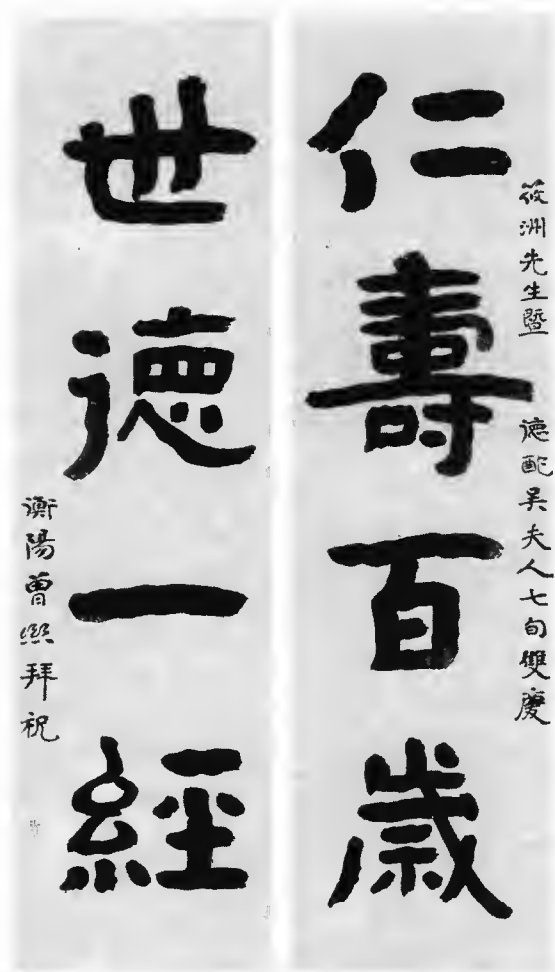 筱洲先生暨 德配吴夫人七旬雙慶
仁壽百歲
世德一經
衡陽曾熙拜祝